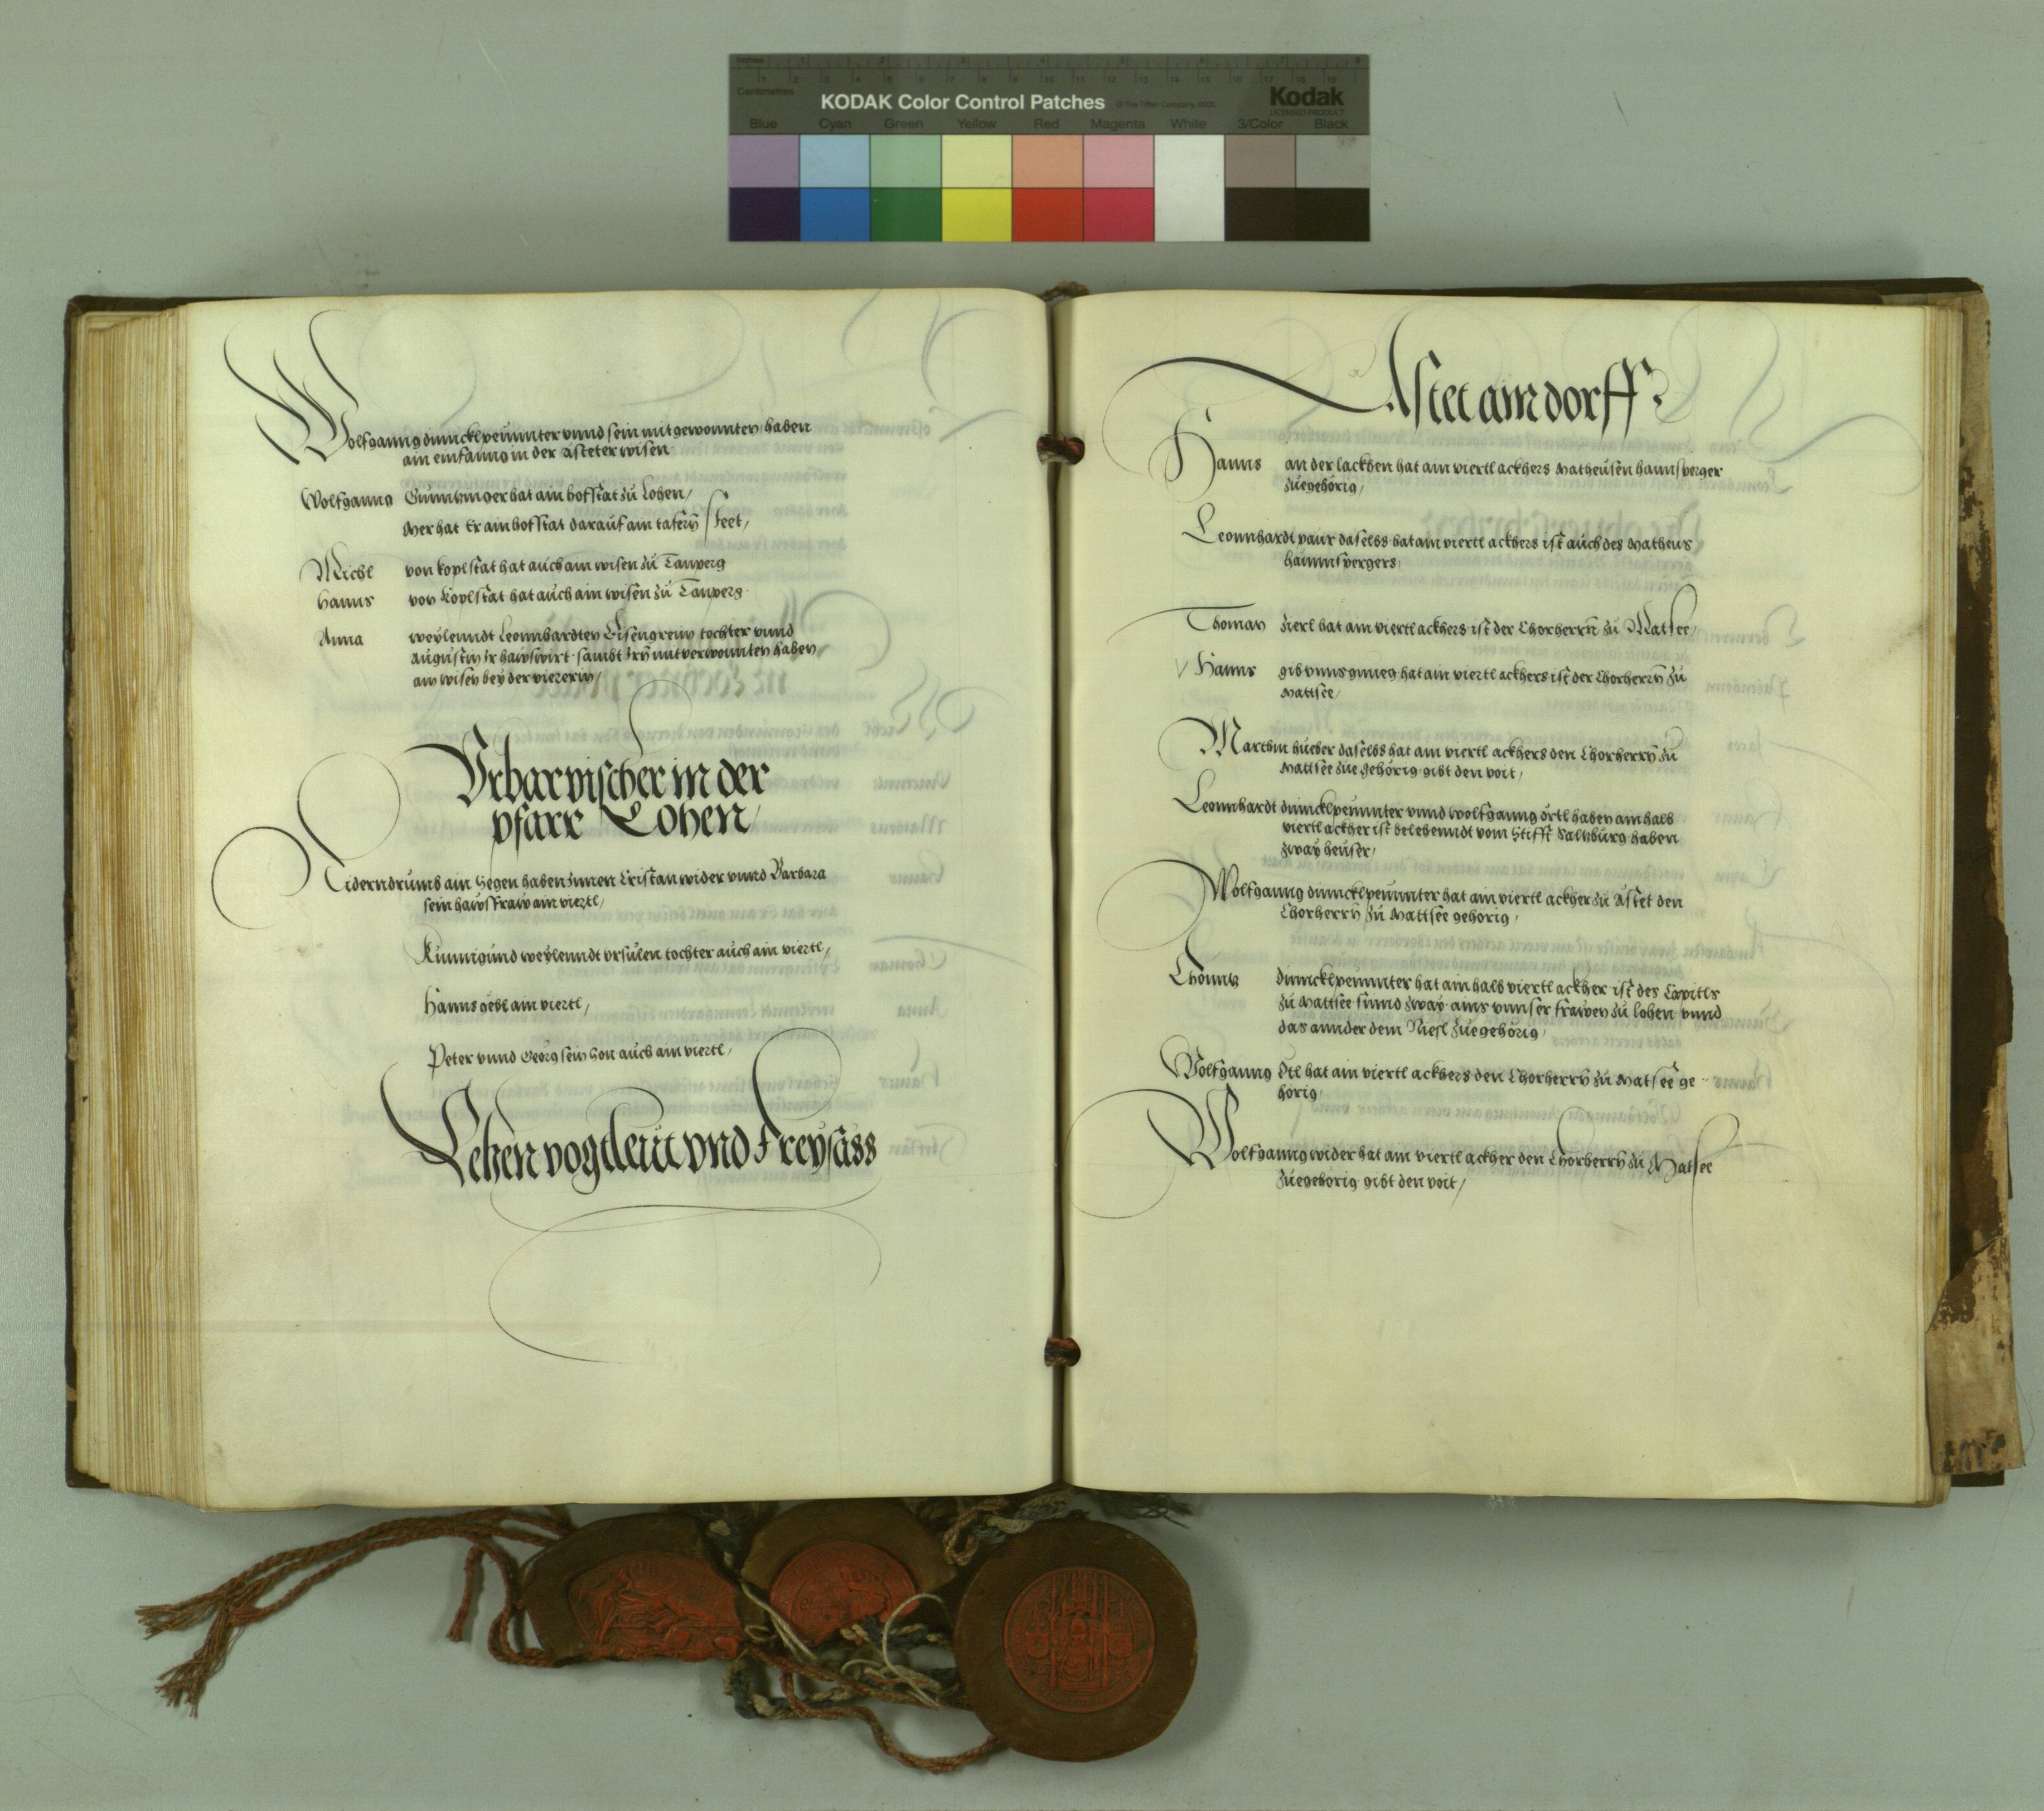 Inches 1 2 3 4 5 6 7 8
Centimetres 1 2 3 4 5 6 7 8 9 10 11 12 13 14 15 16 17 18 19
KODAK Color Control Patches © The Tiffen Company, 2000 Kodak
LICENSED PRODUCT
Blue Cyan Green Yellow Red Magenta White 3/Color Black
Wolfganng dinncklpeunnter vnnd sein mitgewonnten haben
ain einfanng in der Asteter wisen
Wolfganng hat ain hofstat zu Lohen /
Mer hat Er ain hofstat darauf ain tafern steet /
Michl von koplstat hat auch ain wisen zu Tanperg
Hanns von koplstat hat auch ain wisen zu Tanperg
Anna weylenndt Leonnhardten Eisengreins tochter vnnd
Augustin Ir hawswirt sambt Irn mitverwonnten haben
ain wisen bey der /
Vrbar vischer in der
pfarr Lohen /
ain Segen haben Innen Cristan wider vnnd Barbara
sein hawsfraw ain viertl /
Kunnigund weylenndt vrsulen tochter auch ain viertl /
Hanns gebl ain viertl /
Peter vnnd Georg sein Son auch ain viertl /
Lehen vogtleut vnd Freysass
Astet ain dorff
Hanns an der lackhen hat ain viertl ackhers Matheusen haunsperger
zuegehorig /
Leonnhardt paur daselbs hat ain viertl ackhers ist auch des Matheus
haunnspergers
Thoman zierl hat ain viertl ackhers ist der Chorherrn zu Matsee /
Hanns gib vnns gnueg hat ain viertl ackhers ist der Chorherrn zu
Mattsee /
Marthin hueber daselbs hat ain viertl ackhers den Chorherrn zu
Mattsee zue gehorig gibt den voit /
Leonnhardt dinncklpeunnter vnnd wolfganng örtl haben ain halb
viertl ackher ist belehenndt vom Stifft Saltzburg haben
zway heuser /
Wolfganng dinncklpeunnter hat ain viertl ackher zu Astet den
Chorherrn zu Mattsee gehorig /
dinncklpeunnter hat ain halb viertl ackher ist des Capitls
zu Mattsee sinnd zway ains vnnser frawen zu lohen vnnd
das annder dem Riesl zuegehorig /
Wolfganng Ötl hat ain viertl ackhers den Chorherrn zu Matsee ge
horig /
Wolfganng wider hat ain viertl ackher den Chorherrn zu Matsee
zuegehorig gibt den voit /